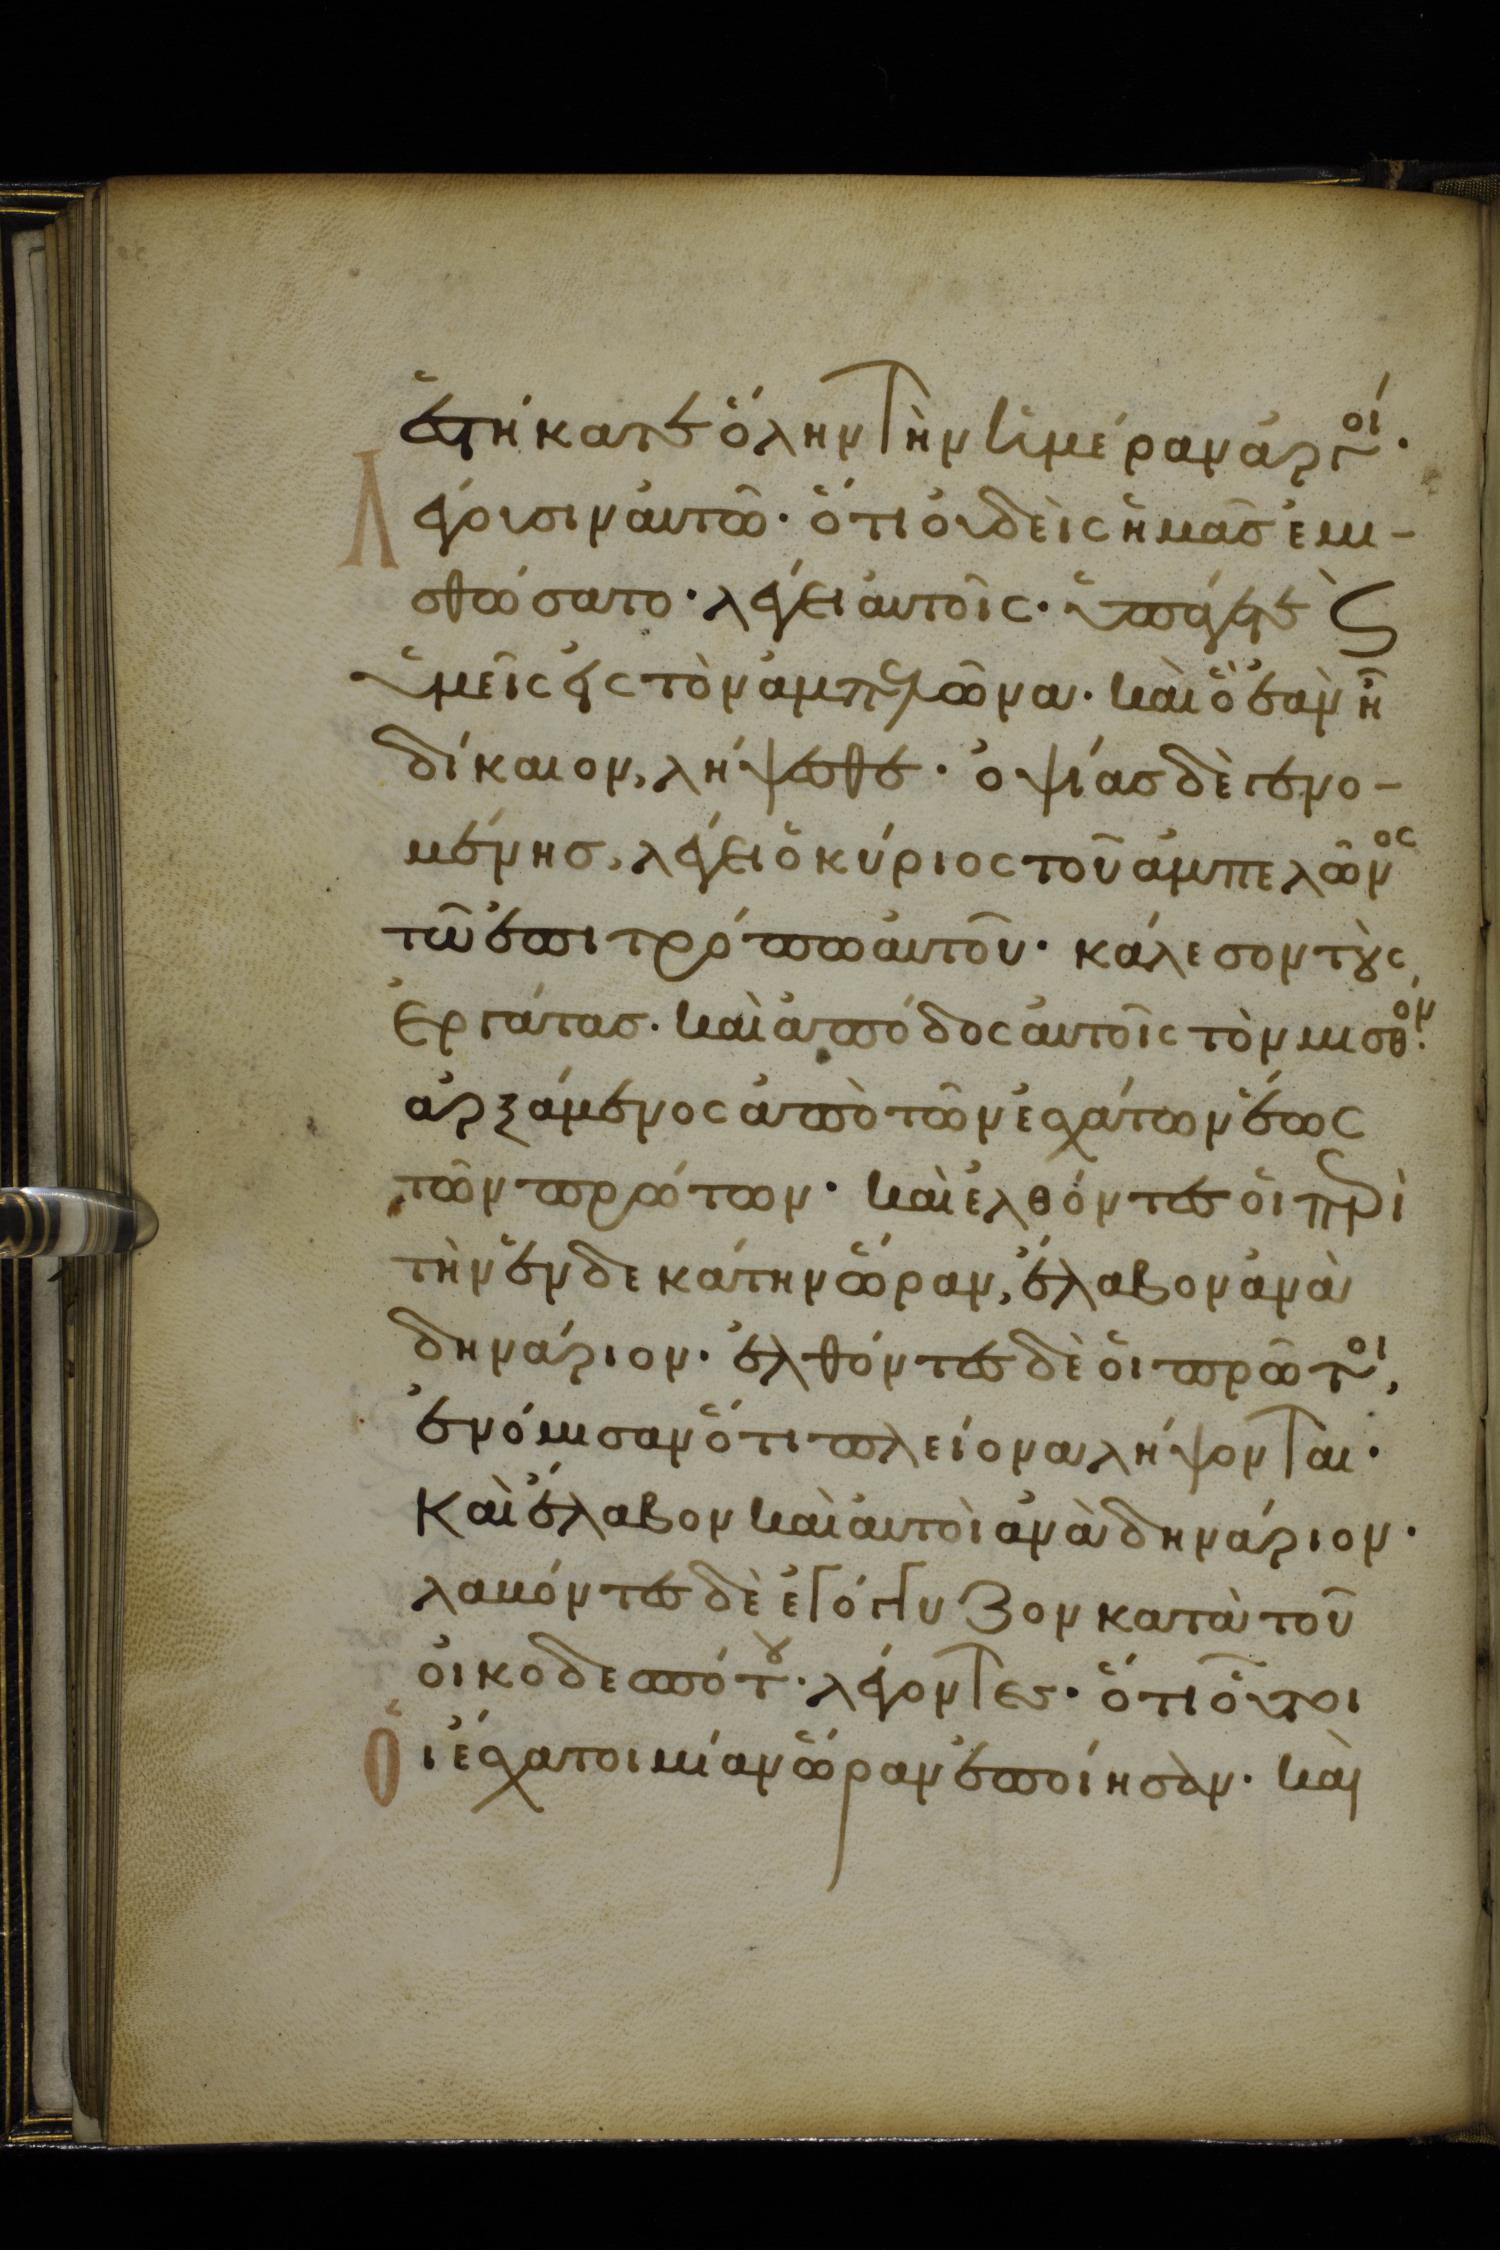 ἑστήκατε ὅλην τὴν ἡμέραν ἀργοί·
Λέγουσιν αὐτῶ· ὅτι οὐδεὶς ἡμᾶς ἐμι-
σθώσατο· λέγει αὐτοῖς· ὑπάγετε καὶ
ὑμεῖς εἰς τὸν ἀμπελῶνα· καὶ ὃ ἐὰν ἦ
δίκαιον, λήψεσθε· ὀψίας δὲ γενο-
μένης, λέγει ὁ κύριος τοῦ ἀμπελῶνος
τῶ ἐπιτρόπω αὐτοῦ· κάλεσον τοὺς
ἐργάτας· καὶ ἀπόδος αὐτοῖς τὸν μισθόν·
ἀρξάμενος ἀπὸ τῶν ἐσχάτων ἕως
τῶν πρώτων· καὶ ἐλθόντες οἱ περὶ
τὴν ἑνδεκάτην ὥραν, ἔλαβον ἀνὰ
δηνάριον· ἐλθόντες δὲ οἱ πρῶτοι,
ἐνόμισαν ὅτι πλείονα λήψονται·
Καὶ ἔλαβον καὶ αὐτοὶ ἀνὰ δηνάριον·
λαβόντες δὲ ἐγόγγυζον κατὰ τοῦ
οἰκοδεσπότου· λέγοντες· ὅτι οὗτοι
Οἱ ἔσχατοι μίαν ὥραν ἐποίησαν· καὶ